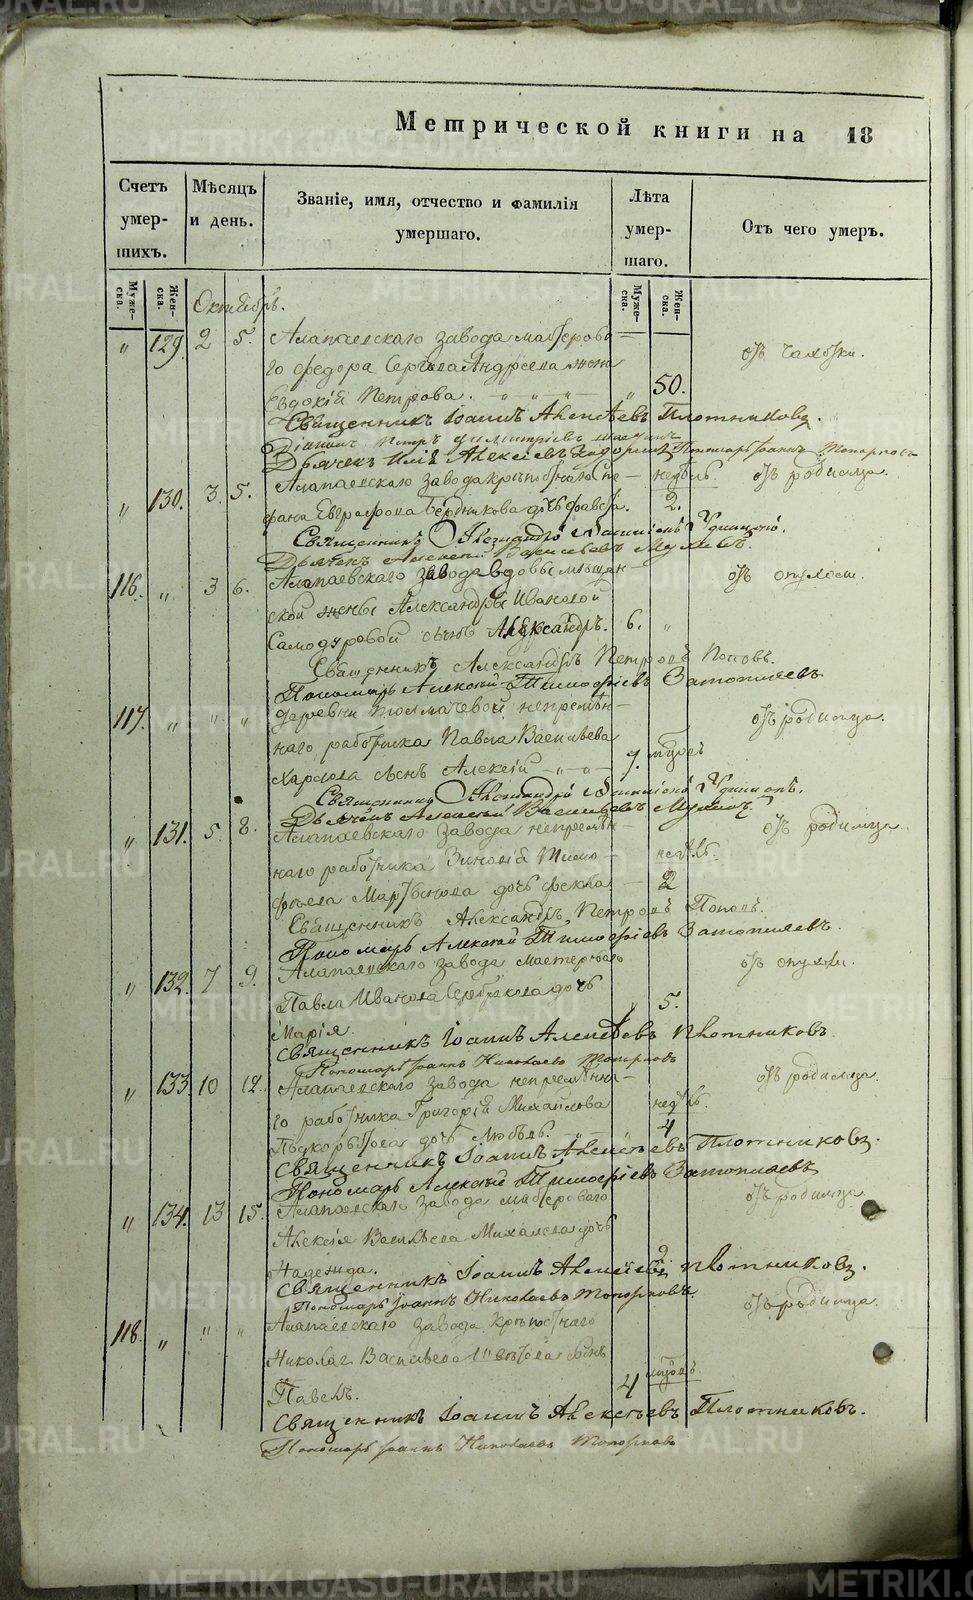 Метрической книги на 18
Счетъ умер- шихъ.
Мѣсяцъ и день.
Званіе, имя, отчество и фамилія умершаго.
Лѣта умер- шаго.
Отъ чего умеръ.
Муже- ска.
Жен- ска.
Муже- ска.
Жен- ска.
Октябрь.
" 129. 2 5. Алапаевскаго завода мастерова-
го Федора Сергѣева Андреева жена отъ чахотки.
Евдокія Петрова. " 50.
Священникъ Іоаннъ Алексѣевъ Плотниковъ.
Діаконъ Петръ Димитріевъ
Дьячекъ Илія Алексѣевъ Пономарь Іоаннъ Топорковъ
" 130. 3. 5. Алапаевскаго завода крѣпостнаго Сте- недѣль. отъ родимца.
фана Евграфова Бердникова дочь 2.
Священникъ Александръ Удинцовъ.
Дьячекъ Алексѣй Васильевъ
116. " 3 6. Алапаевскаго завода вдовы мѣщан- отъ опухоли.
ской жены Александры Ивановой
Самодуровой сынъ Александръ. 6. "
Священникъ Александръ Петровъ Поповъ.
Пономарь Алексѣй Тимофѣевъ Затопляевъ
117. " " " деревни Толмачевой непремѣн- отъ родимца.
наго работника Павла Васильева
сынъ Алексѣй
Священникъ Удинцовъ.
Дьячекъ Алексѣй Васильевъ
" 131. 5. 8. Алапаевскаго завода непремѣн- отъ родимца.
наго работника Зиновія Тимо- недѣль.
фѣева Мартынова дочь Фекла 2
Священникъ Александръ Петровъ Поповъ.
Пономарь Алексѣй Тимофѣевъ Затопляевъ.
" 132. 7 9. Алапаевскаго завода мастероваго отъ опухоли.
Павла Иванова Серебрякова дочь
Марія. " 5.
Священникъ Іоаннъ Алексѣевъ Плотниковъ.
Пономарь Іоаннъ Николаевъ Топорковъ
" 133. 10 12. Алапаевскаго завода непремѣнна- отъ родимца.
го работника Григорія Михайлова недѣль.
дочь Любовь. 4
Священникъ Іоаннъ Алексѣевъ Плотниковъ.
Пономарь Алексѣй Тимофѣевъ Затопляевъ
" 134. 13 15. Алапаевскаго завода мастероваго отъ родимца
Алексѣя Васильева Михалева дочь
Надежда. 2
Священникъ Іоаннъ Алексѣевъ Плотниковъ.
Пономарь Іоаннъ Николаевъ Топорковъ.
118. " " " Алапаевскаго завода крѣпостнаго отъ родимца.
Николая Васильева сынъ
Павелъ. 4
Священникъ Іоаннъ Алексѣевъ Плотниковъ.
Пономарь Іоаннъ Николаевъ Топорковъ
METRIKI.GASO-URAL.RU